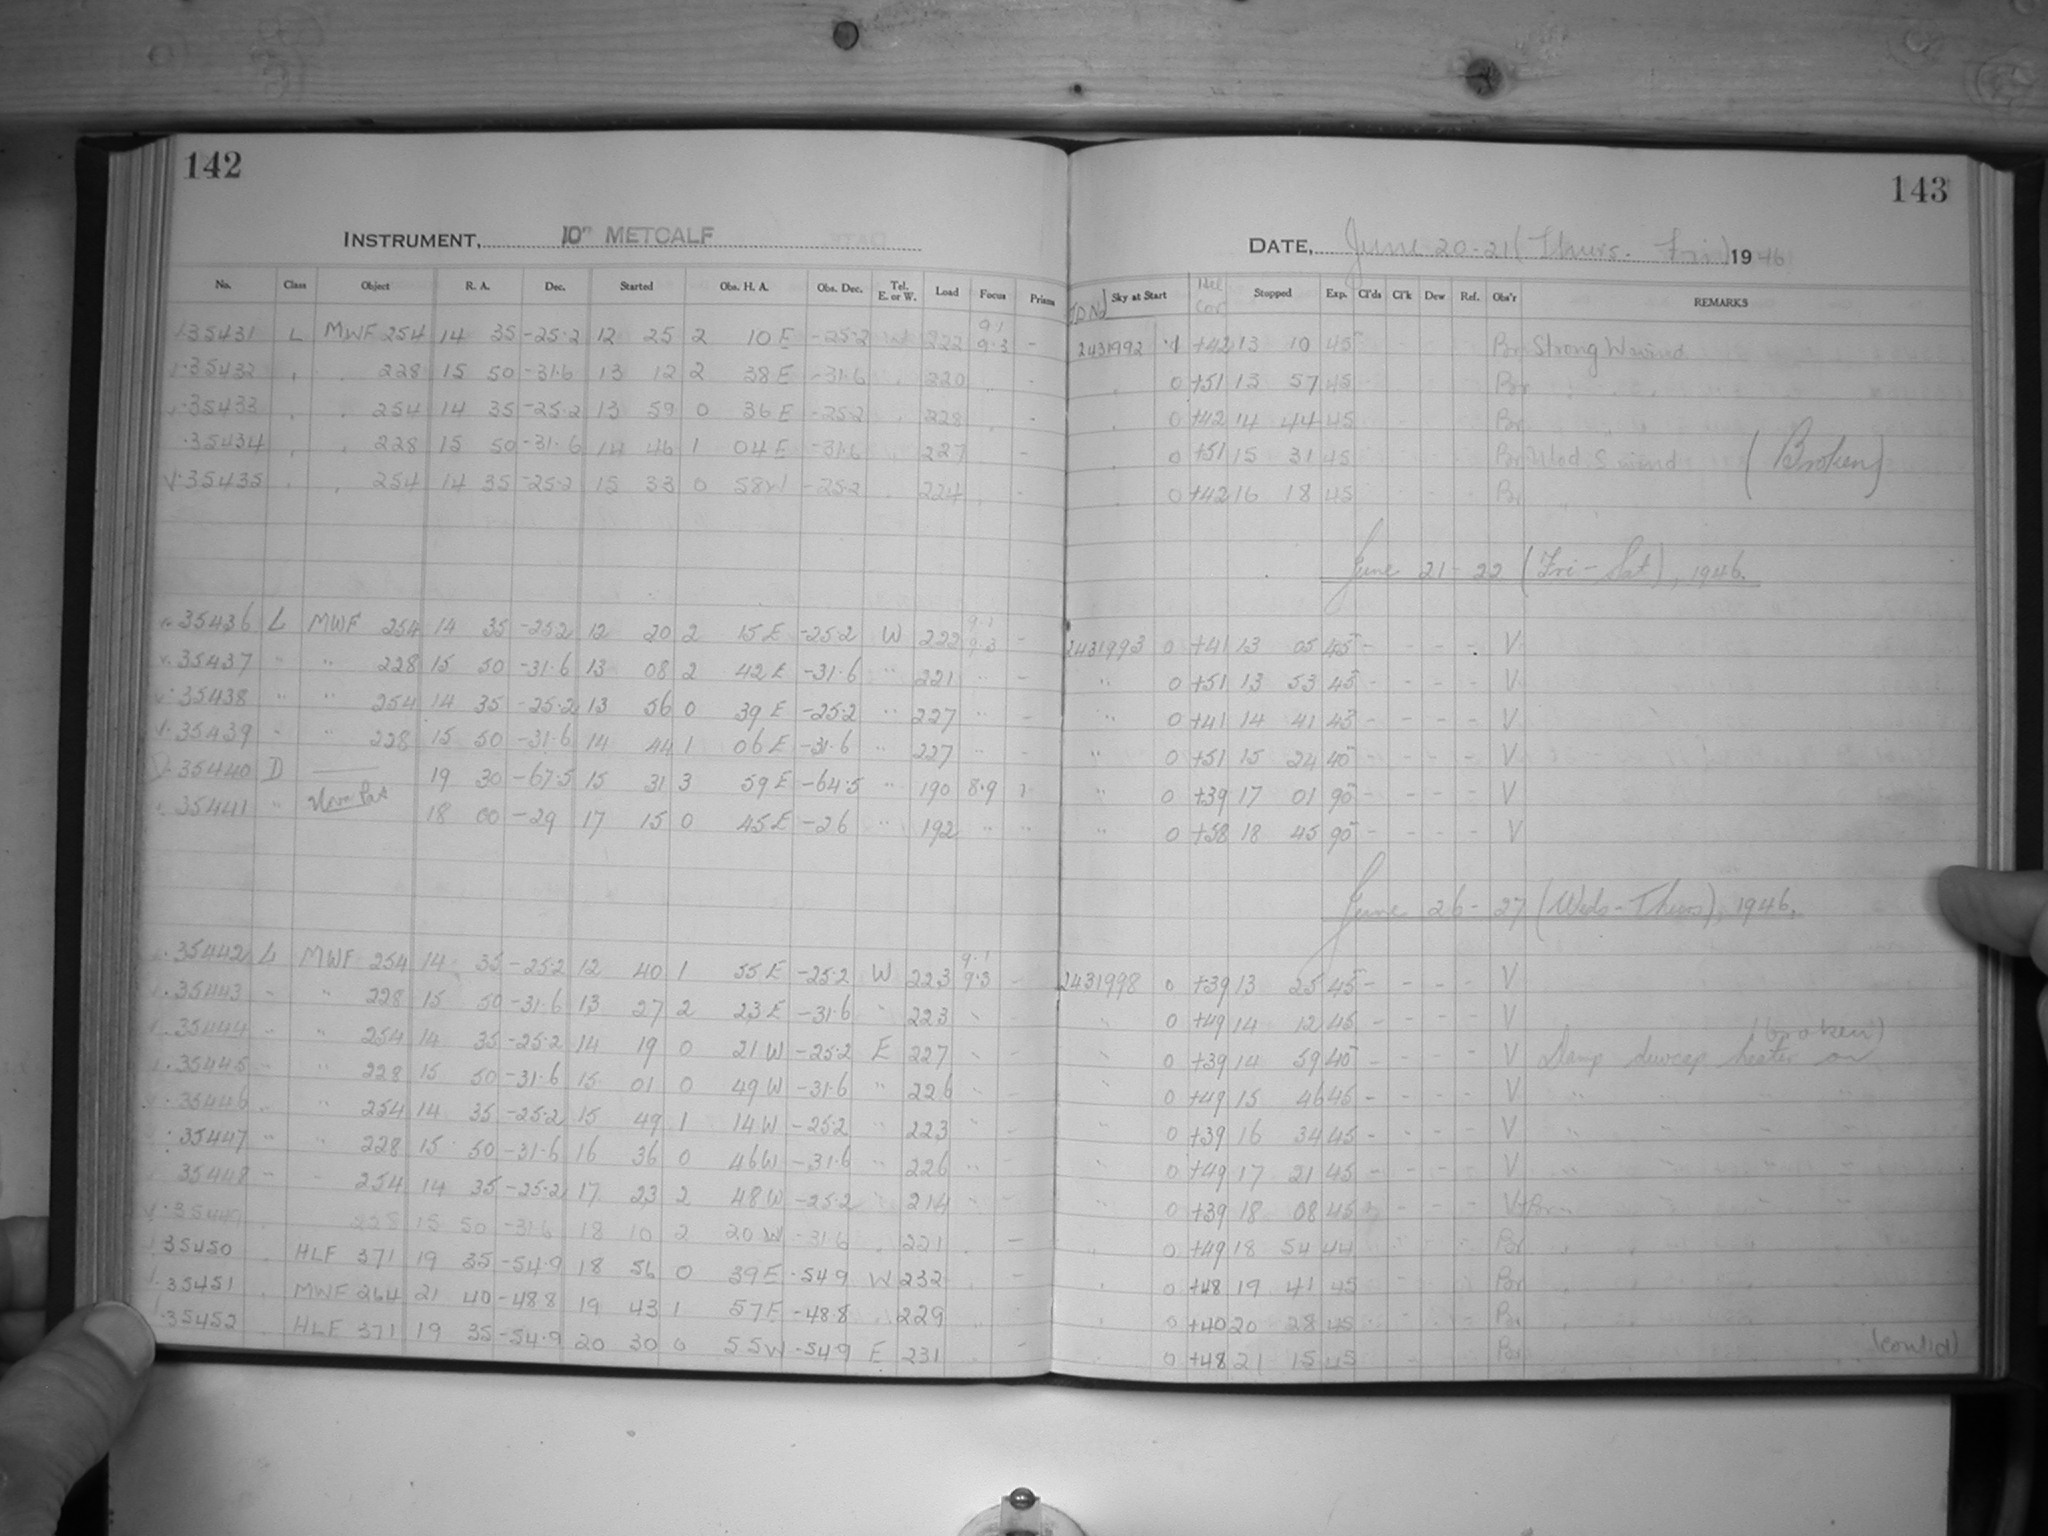 142
143
INSTRUMENT, 10" METCALF
DATE, June 20-21 (Thurs. Fri) 1946
No. Class Object R. A. Dec. Started Obs. H. A. Obs. Dec. Tel. E. or W. Load Focus Prisms
JDN Sky at Start Hel Cor Stopped Exp. Cl'ds Cl'k Dew Ref. Obs'r REMARKS
35431 L MWF 254 14 35 -25.2 12 25 2 10 E -25.2 W 222 9.1 9.3 - 2431992 .1 +42 13 10 45 Br Strong W wind
35432 " " 228 15 50 -31.6 13 12 2 38 E -31.6 " 220 " - " 0 +51 13 57 45 Br
35433 " " 254 14 35 -25.2 13 59 0 36 E -25.2 " 228 " - " 0 +42 14 44 45 Br
35434 " " 228 15 50 -31.6 14 46 1 04 E -31.6 " 227 - " 0 +51 15 31 45 Br Mod S wind (Broken)
35435 " " 254 14 35 -25.2 15 33 0 58 W -25.2 " 224 " - " 0 +42 16 18 45 Br
June 21-22 (Fri-Sat), 1946.
35436 L MWF 254 14 35 -25.2 12 20 2 15 E -25.2 W 222 9.1 9.3 - 2431993 0 +41 13 05 45 - - - - V
35437 " " 228 15 50 -31.6 13 08 2 42 E -31.6 " 221 " - " 0 +51 13 53 45 - - - - V
35438 " " 254 14 35 -25.2 13 56 0 39 E -25.2 " 227 " - " 0 +41 14 41 45 - - - - V
35439 " " 228 15 50 -31.6 14 44 1 06 E -31.6 " 227 " - " 0 +51 15 24 40 - - - - V
35440 D — 19 30 -67.5 15 31 3 59 E -64.5 " 190 8.9 1 " 0 +39 17 01 90 - - - - V
35441 " 18 00 -29 17 15 0 45 E -26 " 192 " " " 0 +58 18 45 90 - - - - V
June 26-27 (Weds-Thurs), 1946.
35442 L MWF 254 14 35 -25.2 12 40 1 55 E -25.2 W 223 9.1 9.3 - 2431998 0 +39 13 25 45 - - - - V
35443 " " 228 15 50 -31.6 13 27 2 23 E -31.6 " 223 " - " 0 +49 14 12 45 - - - - V
35444 " " 254 14 35 -25.2 14 19 0 21 W -25.2 E 227 " - " 0 +39 14 59 40 - - - - V Damp dewcap heater on (broken)
35445 " " 228 15 50 -31.6 15 01 0 49 W -31.6 " 226 " - " 0 +49 15 46 45 - - - - V " " " "
35446 " " 254 14 35 -25.2 15 49 1 14 W -25.2 " 223 " - " 0 +39 16 34 45 - - - - V " " " "
35447 " " 228 15 50 -31.6 16 36 0 46 W -31.6 " 226 " - " 0 +49 17 21 45 - - - - V " " " "
35448 " " 254 14 35 -25.2 17 23 2 48 W -25.2 " 214 " - " 0 +39 18 08 45 - - - V+Br " " " "
35449 " 228 15 50 -31.6 18 10 2 20 W -31.6 " 221 " - " 0 +49 18 54 44 Br
35450 " HLF 371 19 35 -54.9 18 56 0 39 E -54.9 W 232 " - " 0 +48 19 41 45 Br
35451 " MWF 264 21 40 -48.8 19 43 1 57 E -48.8 " 229 " " 0 +40 20 28 45 Br
35452 " HLF 371 19 35 -54.9 20 30 0 55 W -54.9 E 231 " - " 0 +48 21 15 45 Br (cont'd)